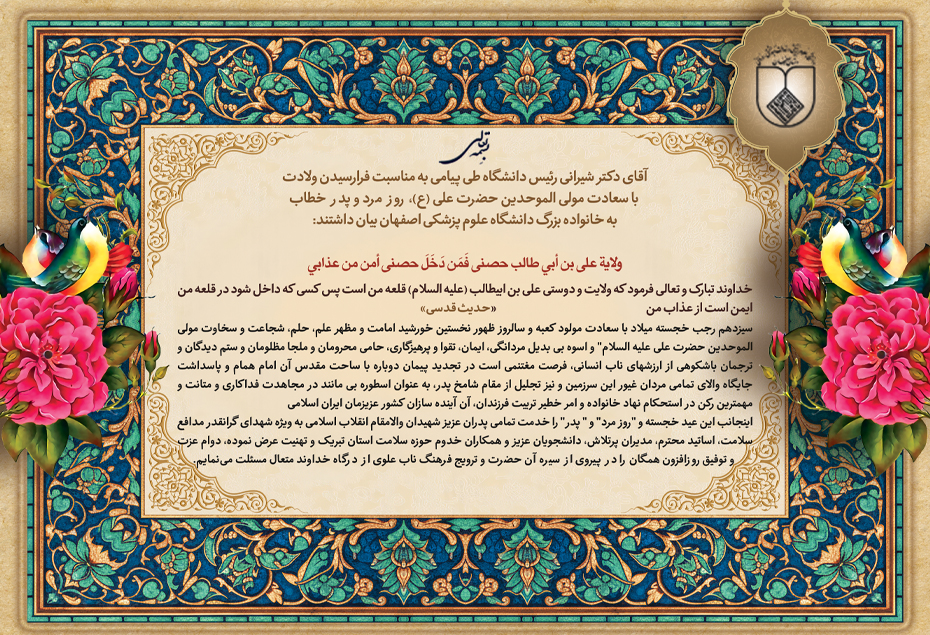 بسمه تعالی
آقای دکتر شیرانی رئیس دانشگاه طی پیامی به مناسبت فرارسیدن ولادت
با سعادت مولی الموحدین حضرت علی (ع)، روز مرد و پدر خطاب
به خانواده بزرگ دانشگاه علوم پزشکی اصفهان بیان داشتند:
ولایة علی بن أبي طالب حصنی فَمَن دَخَلَ حصنی أمن من عذابي
خداوند تبارک و تعالی فرمود که ولایت و دوستی علی بن ابیطالب (علیه السلام) قلعه من است پس کسی که داخل شود در قلعه من
ایمن است از عذاب من «حدیث قدسی»
سیزدهم رجب خجسته میلاد با سعادت مولود کعبه و سالروز ظهور نخستین خورشید امامت و مظهر علم، حلم، شجاعت و سخاوت مولی
الموحدین حضرت علی علیه السلام" و اسوه بی بدیل مردانگی، ایمان، تقوا و پرهیزگاری، حامی محرومان و ملجا مظلومان و ستم دیدگان و
ترجمان باشکوهی از ارزشهای ناب انسانی، فرصت مغتنمی است در تجدید پیمان دوباره با ساحت مقدس آن امام همام و پاسداشت
جایگاه والای تمامی مردان غیور این سرزمین و نیز تجلیل از مقام شامخ پدر، به عنوان اسطوره بی مانند در مجاهدت فداکاری و متانت و
مهمترین رکن در استحکام نهاد خانواده و امر خطیر تربیت فرزندان، آن آینده سازان کشور عزیزمان ایران اسلامی
اینجانب این عید خجسته و "روز مرد" و " پدر" را خدمت تمامی پدران عزیز شهیدان والامقام انقلاب اسلامی به ویژه شهدای گرانقدر مدافع
سلامت، اساتید محترم، مدیران پرتلاش، دانشجویان عزیز و همکاران خدوم حوزه سلامت استان تبریک و تهنیت عرض نموده، دوام عزت
و توفیق روزافزون همگان را در پیروی از سیره آن حضرت و ترویج فرهنگ ناب علوی از درگاه خداوند متعال مسئلت می‌نمایم.